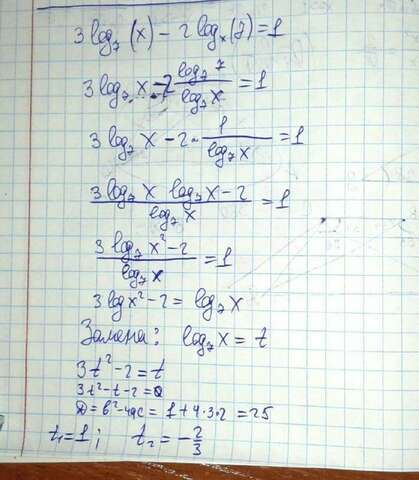 3 log₇ (x) - 2 logₓ (7) = 1
3 log₇ x - 2 log₇ 7 / log₇ x = 1
3 log₇ x - 2 · 1 / log₇ x = 1
3 log₇ x log₇ x - 2 / log₇ x = 1
3 log₇ x² - 2 / log₇ x = 1
3 log x² - 2 = log₇ x
Замена: log₇ x = t
3t² - 2 = t
3t² - t - 2 = 0
D = b² - 4ac = 1 + 4·3·2 = 25
t₁ = 1; t₂ = -2/3